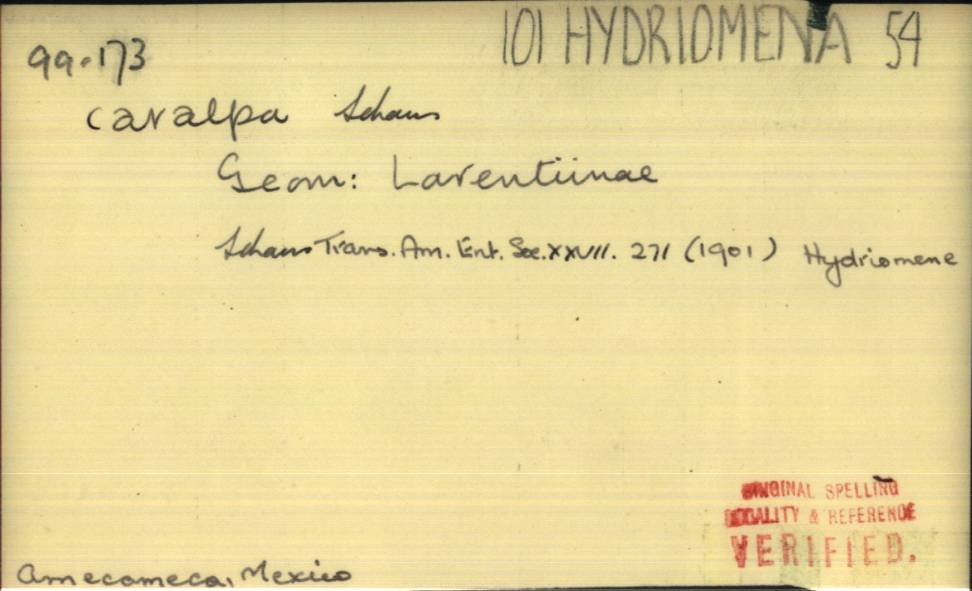 101 HYDRIOMENA 54
99.173
caralpa Schaus
Geom: Larentiinae
Schaus Trans. Am. Ent. Soc. XXVII. 271 (1901) Hydriomene
ORIGINAL SPELLING
LOCALITY & REFERENCE
VERIFIED.
Amecameca, Mexico